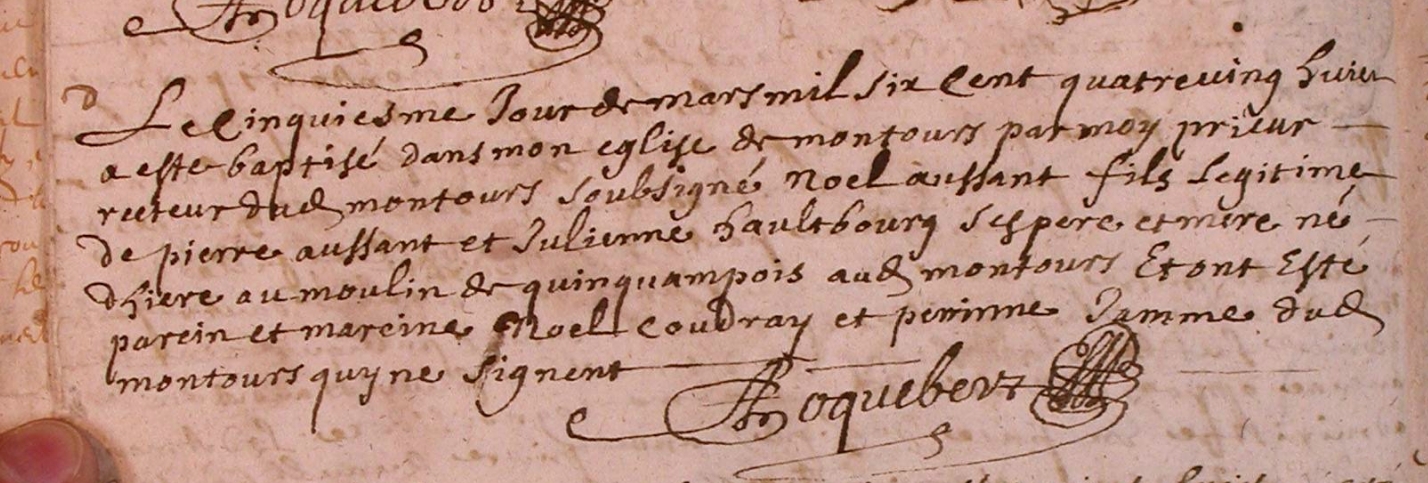 Roquebert
Le Cinquiesme Jour de mars mil six Cent quatreving huict
a este baptisé dans mon eglise de montours par moy prieur
recteur dud montours soubsigné Noel aussant fils legitime
de pierre aussant et Julienne haultbourg ses pere et mere né
dhiere au moulin de quinquampois aud montours Et ont Esté
parein et mareine Noel Coudray et perinne Jamme dud
montours quy ne signent
Roquebert